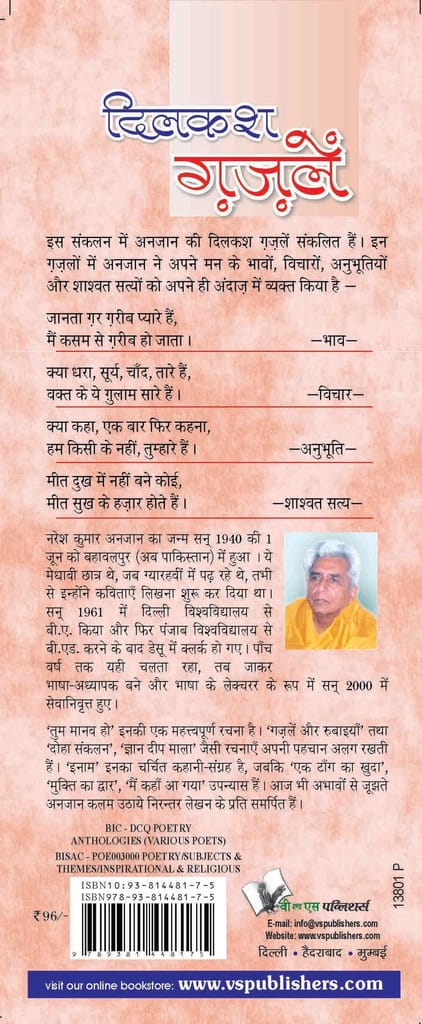 दिलकश
ग़ज़लें
इस संकलन में अनजान की दिलकश ग़ज़लें संकलित हैं। इन
ग़ज़लों में अनजान ने अपने मन के भावों, विचारों, अनुभूतियों
और शाश्वत सत्यों को अपने ही अंदाज़ में व्यक्त किया है –
जानता ग़र ग़रीब प्यारे हैं,
मैं कसम से ग़रीब हो जाता। –भाव–
क्या धरा, सूर्य, चाँद, तारे हैं,
वक्त के ये ग़ुलाम सारे हैं। –विचार–
क्या कहा, एक बार फिर कहना,
हम किसी के नहीं, तुम्हारे हैं। –अनुभूति–
मीत दुख में नहीं बने कोई,
मीत सुख के हज़ार होते हैं। –शाश्वत सत्य–
नरेश कुमार अनजान का जन्म सन् 1940 की 1
जून को बहावलपुर (अब पाकिस्तान) में हुआ । ये
मेधावी छात्र थे, जब ग्यारहवीं में पढ़ रहे थे, तभी
से इन्होंने कविताएँ लिखना शुरू कर दिया था।
सन् 1961 में दिल्ली विश्वविद्यालय से
बी.ए. किया और फिर पंजाब विश्वविद्यालय से
बी.एड. करने के बाद डेसू में क्लर्क हो गए। पाँच
वर्ष तक यही चलता रहा, तब जाकर
भाषा-अध्यापक बने और भाषा के लेक्चरर के रूप में सन् 2000 में
सेवानिवृत्त हुए।
‘तुम मानव हो’ इनकी एक महत्त्वपूर्ण रचना है। ‘गज़लें और रुबाइयाँ’ तथा
‘दोहा संकलन’, ‘ज्ञान दीप माला’ जैसी रचनाएँ अपनी पहचान अलग रखती
हैं। ‘इनाम’ इनका चर्चित कहानी-संग्रह है, जबकि ‘एक टाँग का खुदा’,
‘मुक्ति का द्वार’, ‘मैं कहाँ आ गया’ उपन्यास हैं। आज भी अभावों से जूझते
अनजान कलम उठाये निरन्तर लेखन के प्रति समर्पित हैं।
BIC - DCQ POETRY
ANTHOLOGIES (VARIOUS POETS)
BISAC - POE003000 POETRY/SUBJECTS &
THEMES/INSPIRATIONAL & RELIGIOUS
ISBN10:93-814481-7-5
ISBN978-93-814481-7-5
₹96/-
9 789381 448175
13801 P
वी एण्ड एस पब्लिशर्स
E-mail: info@vspublishers.com
Website: www.vspublishers.com
दिल्ली • हैदराबाद • मुम्बई
visit our online bookstore: www.vspublishers.com